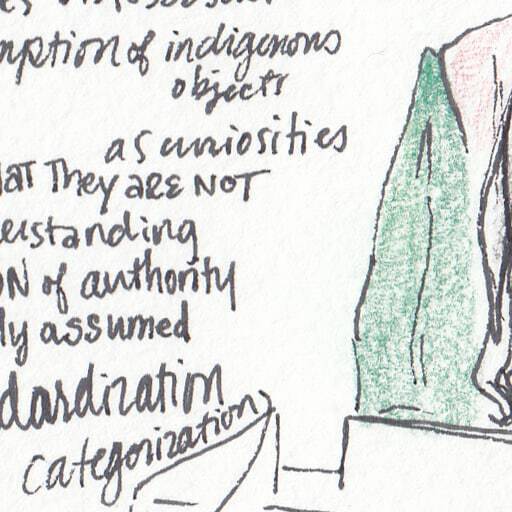 mption of indigenous
objects
as curiosities
AT They ARE NOT
erstanding
ON of authority
ly assumed
dardization
categorization